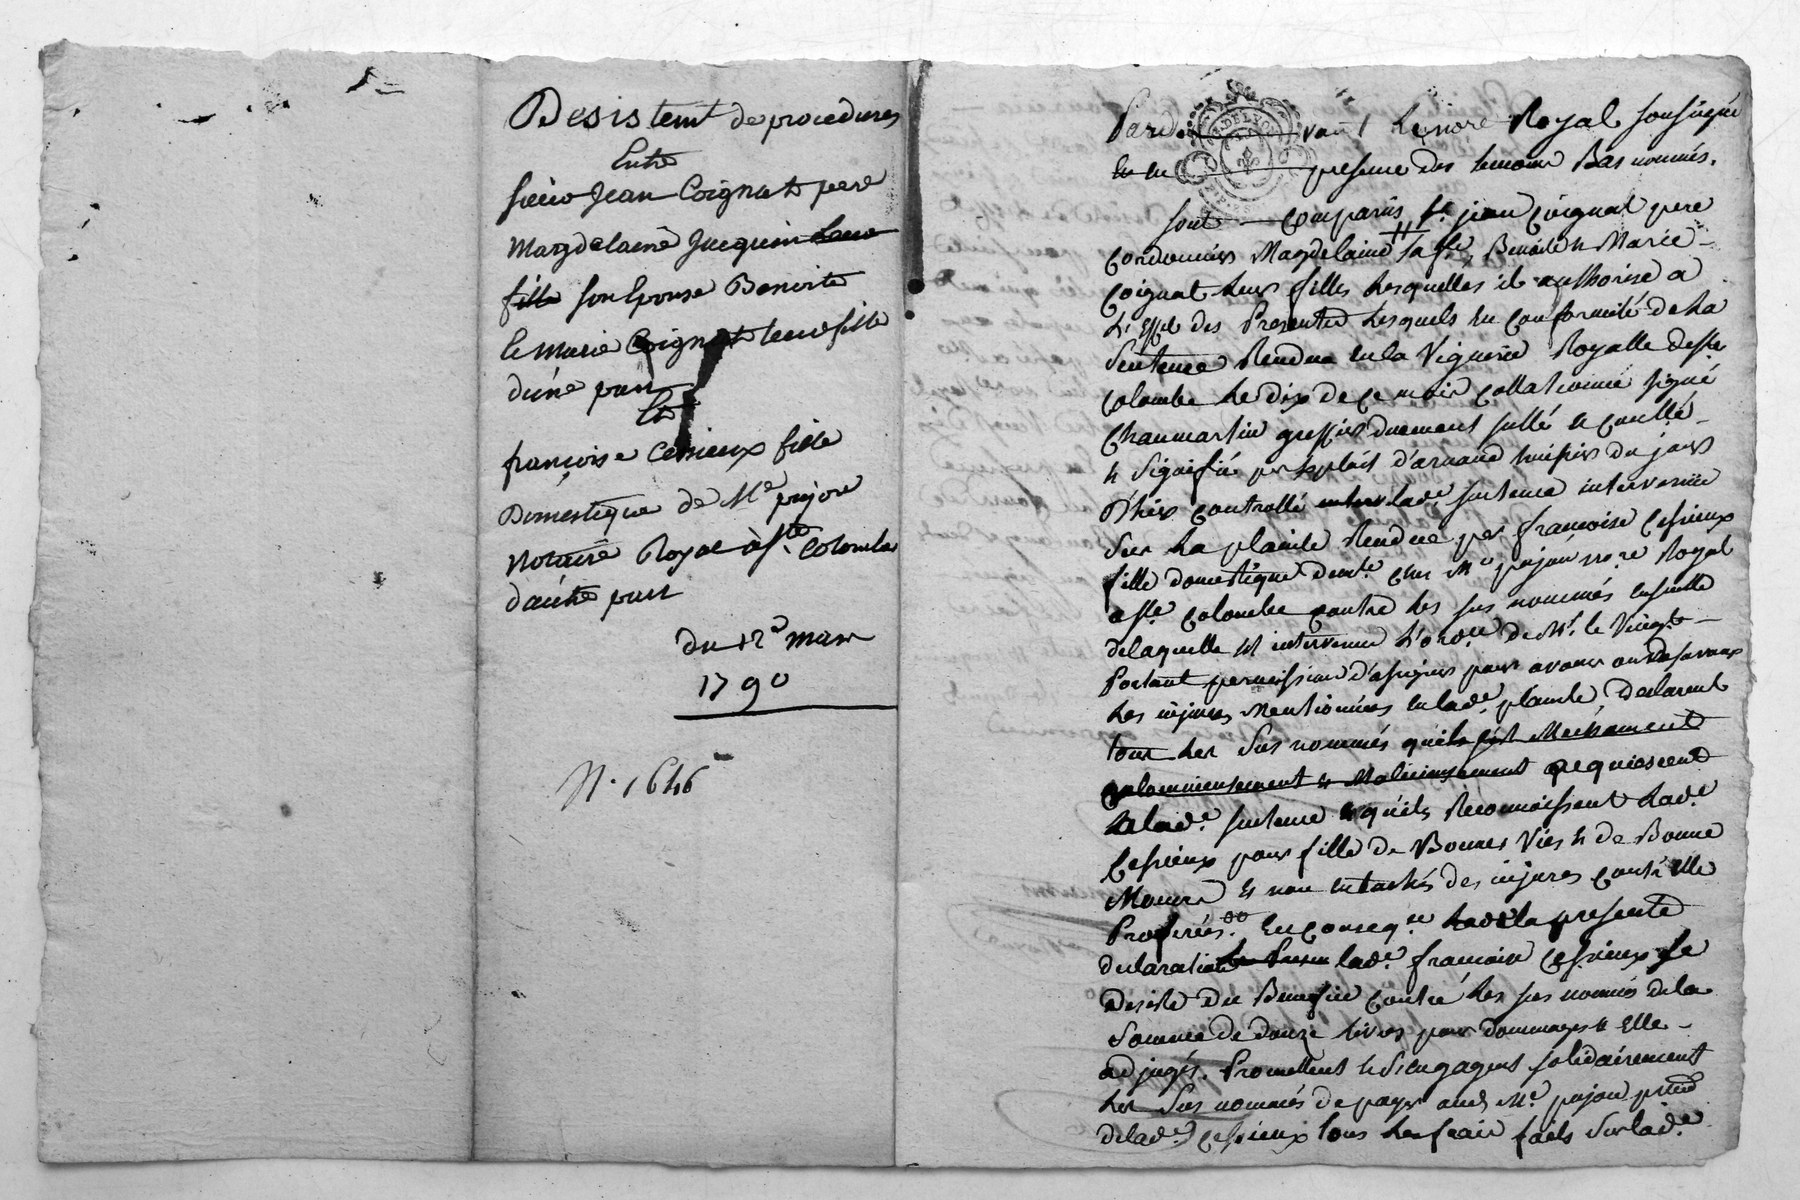 Desistemt de procedures
Entre
sieur Jean Coignat pere
Magdelaine Jacquin leur
fille son Epouse Benoite
et Marie Coignat leur fille
d'une part
Et
françoise Cessieux fille
Domestique de Me pujore
Notaire Royal à Ste Colombe
d'autre part
du 12e mars
1790
N. 1646
Pardevant le nore Royal soussigné
en en presence des temoins Bas nommés.
sont comparus sr. jean Coignat pere
cordonnier Magdelaine sa fe, Benoite et Marie
Coignat leurs filles lesquelles il authorise a
L'Effet des Presentes lesquels en conformité de la
Sentence Rendue en la Viguerie Royalle de Ste
Colombe le dix de ce mois collationné signé
Chaumartin greffier duement sellé et conllé
et signifié par exploit d'arnaud huissier du jour
D'hier controllé lade sentence intervenüe
Sur la plainte Rendue par francoise Cessieux
fille domestique demte chez Me pujou nore Royal
a Ste. Colombe contre les sus nommés ensuitte
de laquelle est intervenue L'ordce de Mr. le
Portant permission d'assigner pour avouer ou desavouer
Les injures Mentionnées en lade. plainte, declarent
tous les sus nommés qu'ils Mechament
calomnieusement et Malicieusement acquiescent
a lade. sentence et qu'ils Reconnoissent lade
Cessieux pour fille de Bonnes Vies et de Bonne
Moeurs et non entachés des injures contre Elle
Proferées. En conseqce de la presente
declaration lade. francoise Cessieux se
desiste du Benefice contre les sus nommés de la
Somme de douze livres pour dommages a Elle
adjugés. Promettent et S'engagent solidairement
les Sus nommés de payer aud. Me. pujou
de lade. Cessieux tous les frais faits Sur lade.